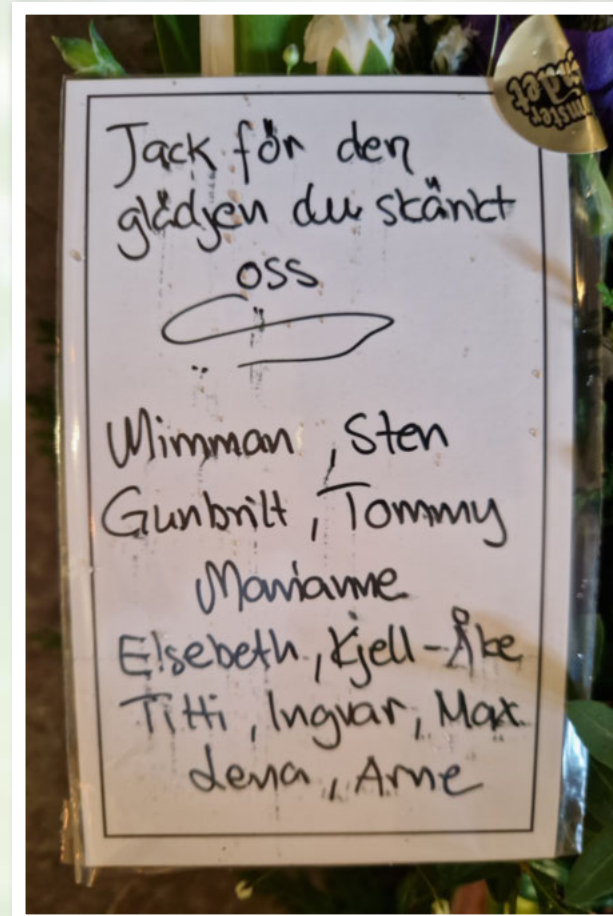 Tack för den
glädjen du skänkt
oss
Mimman, Sten
Gunbritt, Tommy
Marianne
Elsebeth, Kjell-Åke
Titti, Ingvar, Max
Lena, Arne